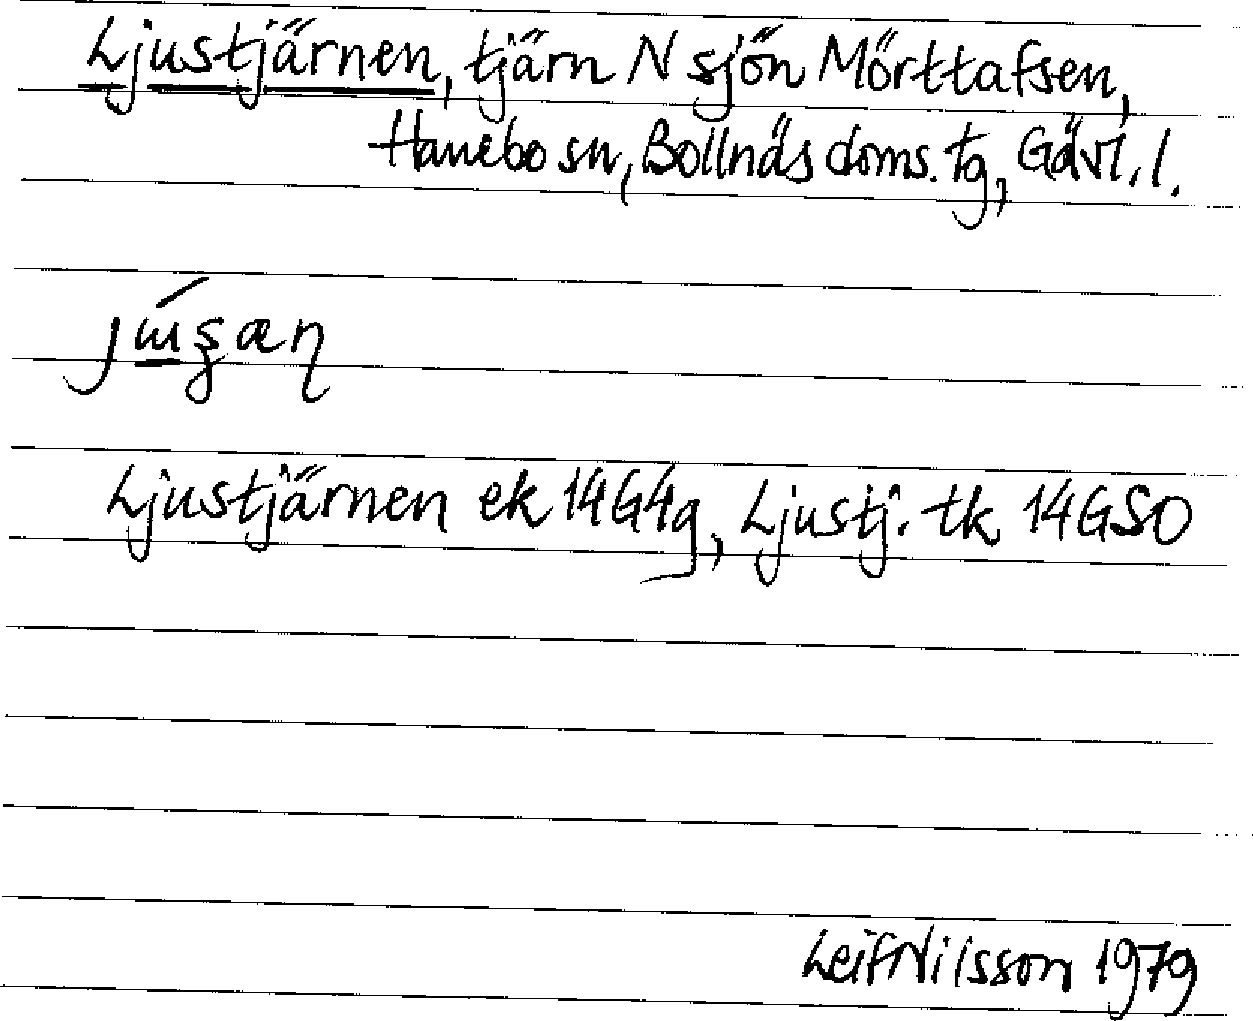 Ljustjärnen, tjärn N sjön Mörttafsen,
Hanebo sn, Bollnäs doms. tg, Gävl. l.
Ljustjärnen ek 14G4g, Ljustj. tk 14GSO
Leif Nilsson 1979